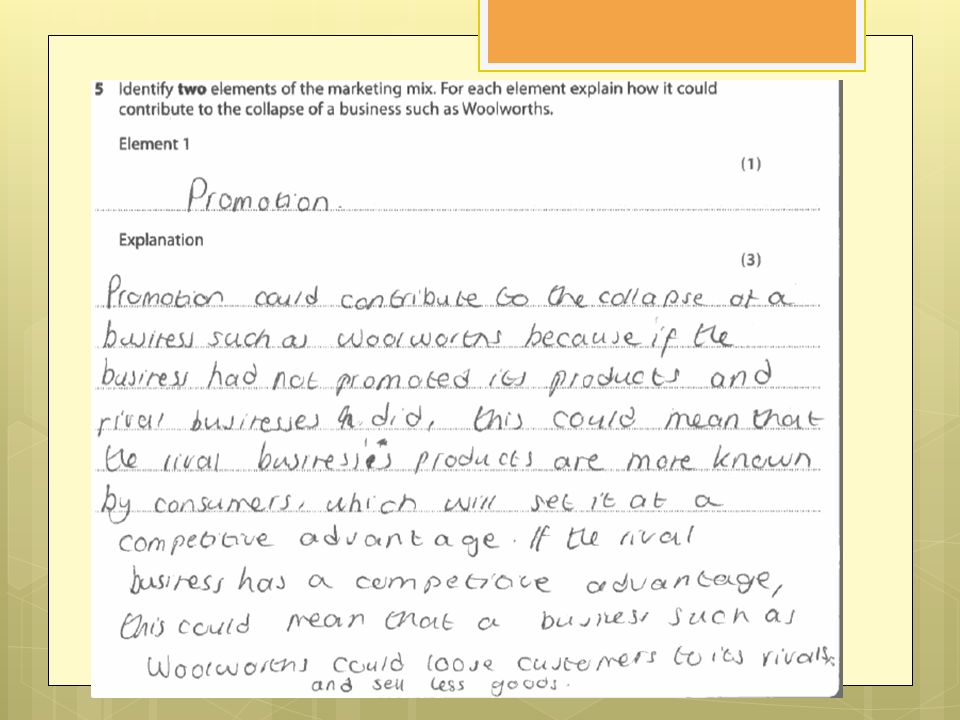 5 Identify two elements of the marketing mix. For each element explain how it could
contribute to the collapse of a business such as Woolworths.
Element 1
(1)
Promotion.
Explanation
(3)
Promotion could contribute to the collapse of a
business such as Woolworths because if the
business had not promoted its products and
rival businesses did, this could mean that
the rival business's products are more known
by consumers, which will set it at a
competitive advantage. If the rival
business has a competitive advantage,
this could mean that a business such as
Woolworths could loose customers to its rivals
and sell less goods.